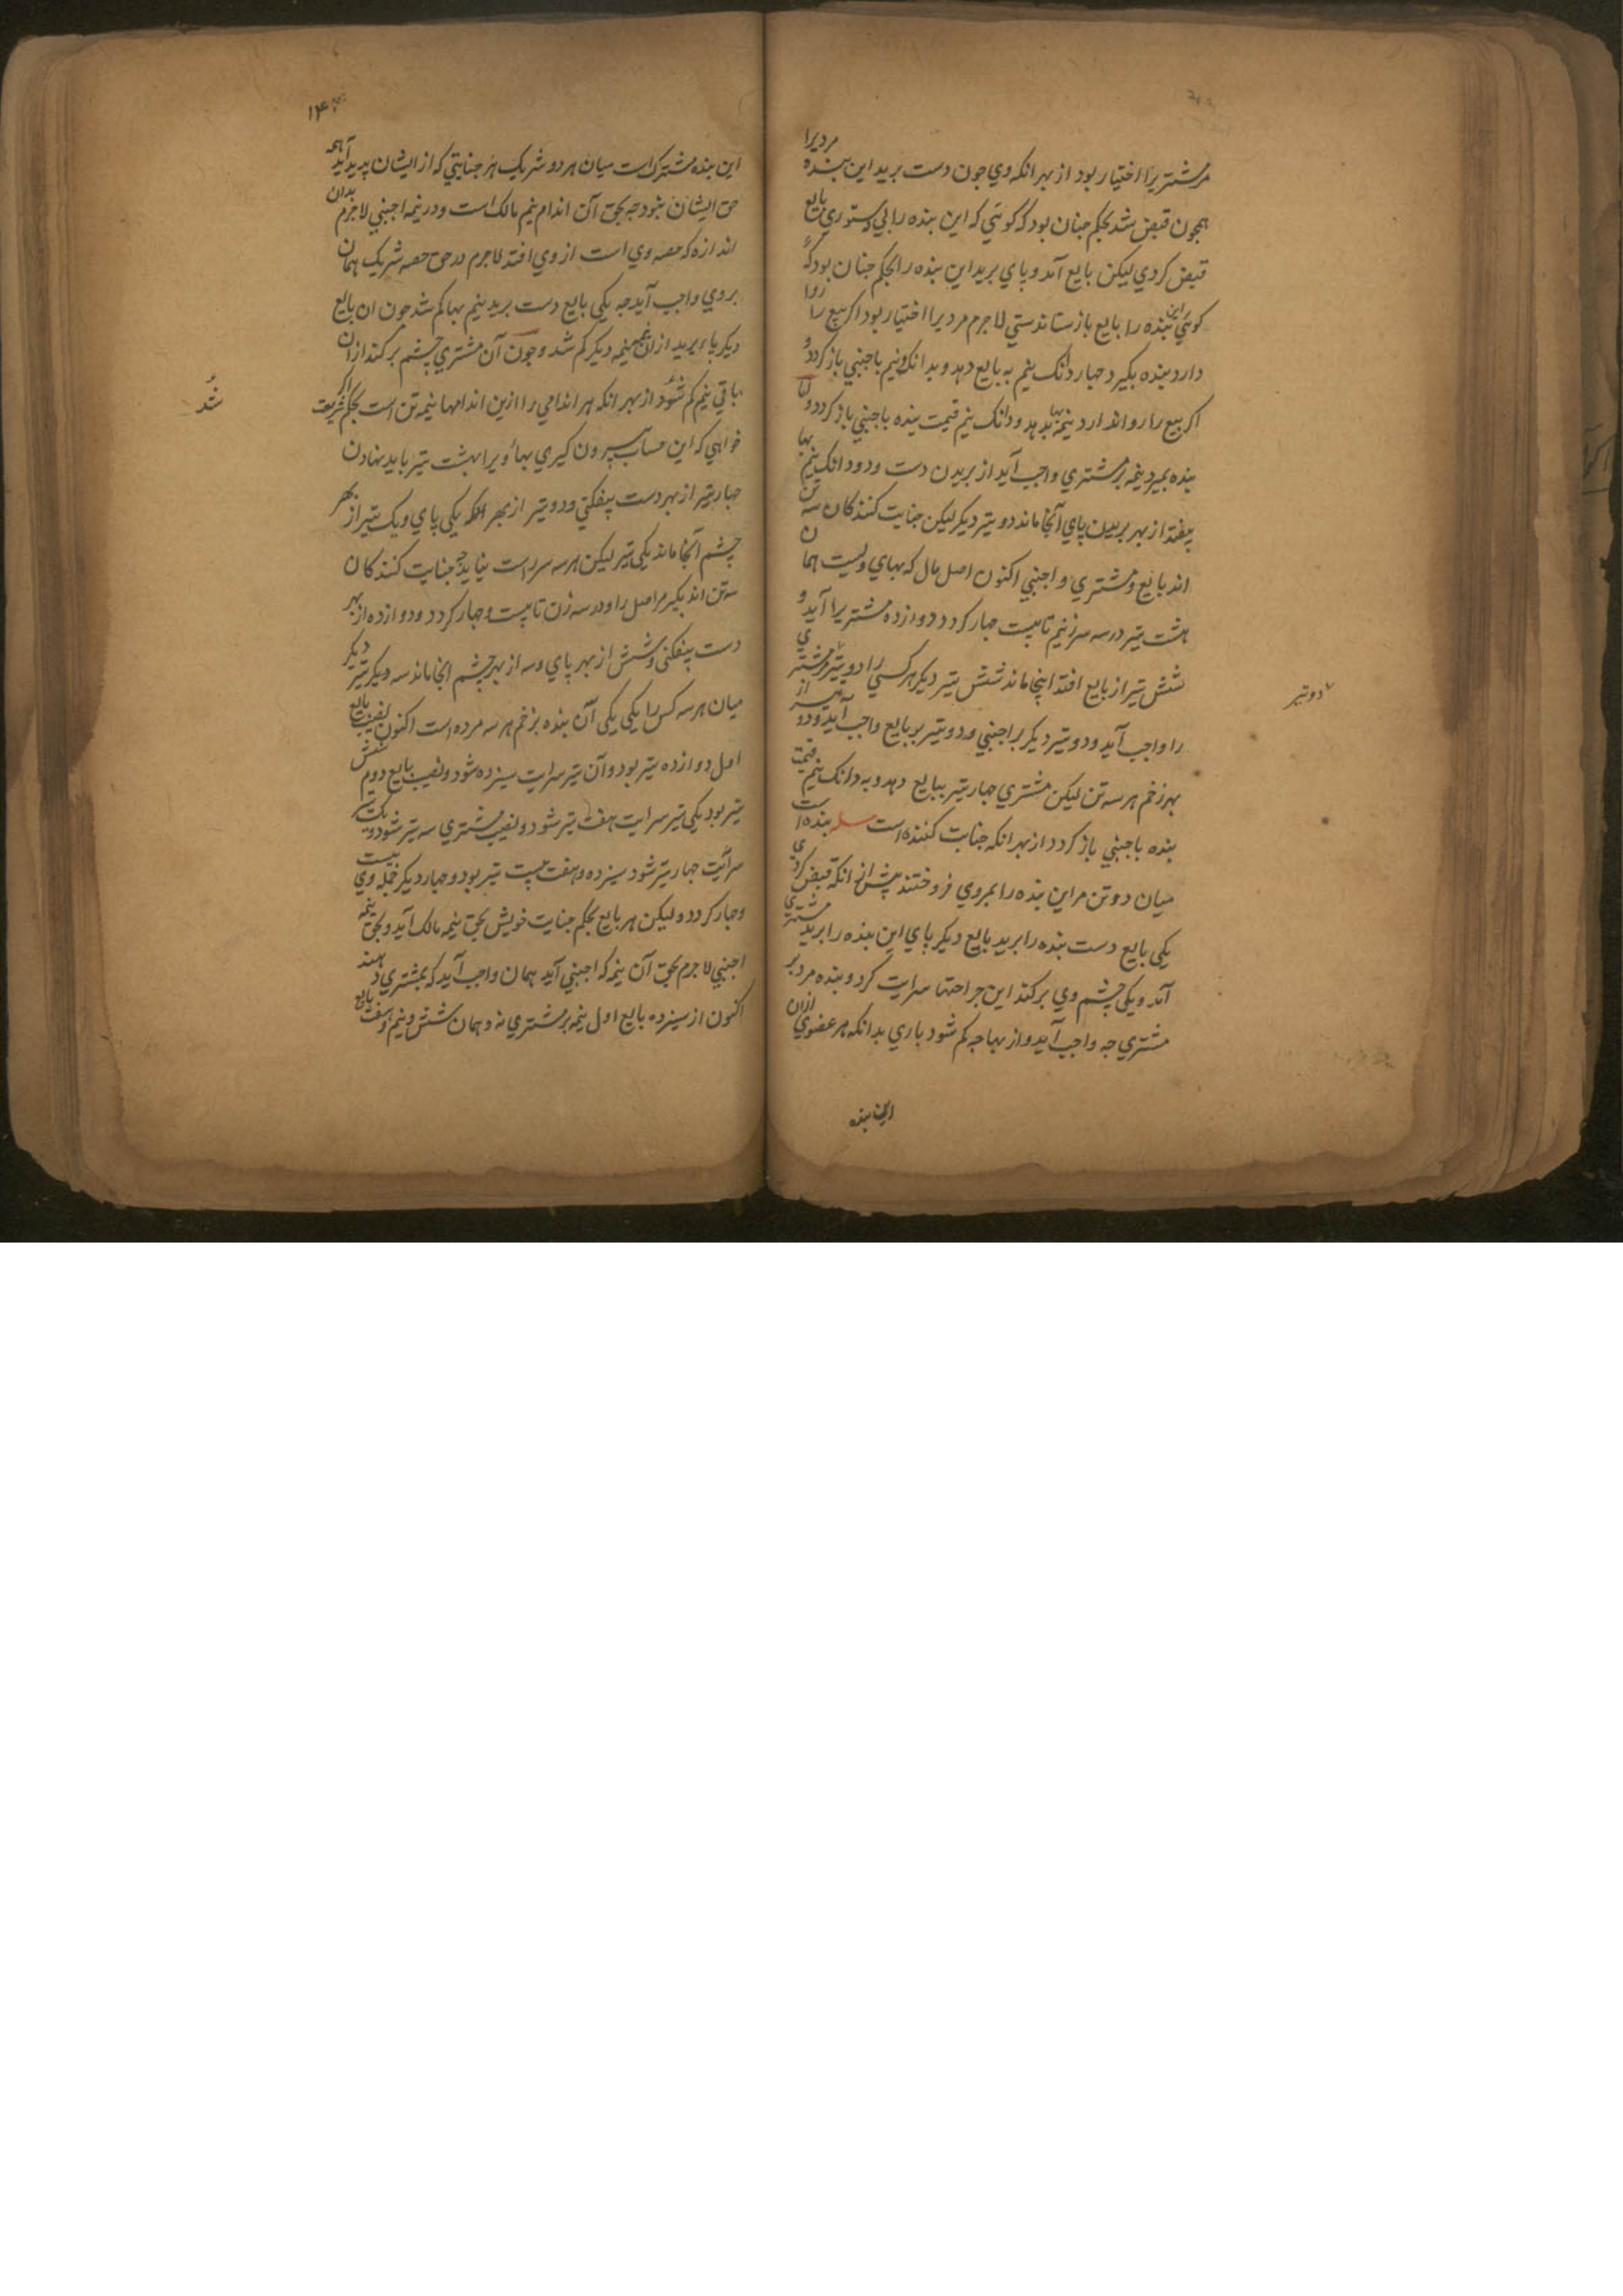 مر مشتریرا اختیار بود از بهر انکه وی جون دست برید این بنده مردیرا
همجون قبض شد بحکم جنان بود که کوئی که این بنده را بی دستوری بایع
قبض کردی لیکن بایع آمد و پای برید این بنده را بحکم جنان بود که
کوئی این بنده را بایع باز ستاندستی لاجرم مردیرا اختیار بود اکر بیع را روا
دارد بنده بکیرد جهار دانک نیم به بایع دهد و بدانک و نیم باجنبی باز کردد و
اکر بیع را روا ندارد نیمه بها بدهد و دانک نیم قیمت بنده باجنبی باز کردد و اما
بنده بمیرد نیمه بر مشتری واجب آید از بریدن دست و دو دانک نیم بها
بیفتد از بهر بریدن پای آنجا ماند دو تیر دیکر لیکن جنایت کنندکان سه تن
اند بایع و مشتری و اجنبی اکنون اصل مال که بهای ویست همان
هشت تیر در سه سر زنیم تا بیست جهار کردد دوازده مشتریرا آید و
شش تیر از بایع افتد اینجا ماند شش تیر دیکر هر کسی را دو تیر مشتری
را واجب آید و دو تیر دیکر بر اجنبی و دو تیر بر بایع واجب آید و دو از
بهر زخم هر سه تن لیکن مشتری جهار تیر ببایع دهد و به دانک نیم قیمت
بنده باجنبی باز کردد از بهر انکه جنایت کننده است مسله بنده است
میان دو تن مر این بنده را بمروی فروختند پیش از انکه قبض کردی
یکی بایع دست بنده را برید بایع دیکر پای این بنده را برید مشتری
آمد و یکی چشم وی بر کند این جراحتها سرایت کرد و بنده مرد بر
مشتری جه واجب آید و از بها جه کم شود باری بدانکه هر عضوی ازان
این بنده
دو تیر
۱۴۳
این بنده مشترک است میان هر دو شریک هر جنایتی که از ایشان پدید آید همه
حق ایشان نبود جه بحق آن اندام نیم مالک است و در نیمه اجنبی لاجرم بدان
اندازه که حصه وی است از وی افتد لاجرم در حق حصه شریک همان
بر وی واجب آید جه یکی بایع دست برید نیم بها کم شد جون ان بایع
دیکر پاء برید ازان نیمه نیمه دیکر کم شد و جون آن مشتری چشم بر کند ازان
باقی نیم کم شود از بهر انکه هر اندامی را ازین اندامها نیمه تن است بحکم شریعت اکر
خواهی که این حساب بیرون کیری بهاء ویرا بهشت تیر باید نهادن
جهار تیر از بهر دست بیفکنی و دو تیر از بهر یکی پای و یک تیر از بهر
چشم آنجا ماند یکی تیر لیکن هر سه سر راست نیاید جه جنایت کنندکان
سه تن اند بکیر مر اصل را و در سه زن تا بیست و جهار کردد و دوازده از بهر
دست بیفکنی و شش از بهر پای و سه از بهر چشم انجا ماند سه دیکر تیر دیکر
میان هر سه کس را یکی یکی آن بنده بزخم هر سه مرده است اکنون نصیب بایع
اول دوازده تیر بود و آن تیر سرایت سیزده شود و نصیب بایع دوم شش
تیر بود یکی تیر سرایت هفت تیر شود و نصیب مشتری سه تیر شود و یک تیر
سرایت جهار تیر شود سیزده و هفت بیست تیر بود و جهار دیکر جمله وی بیست
و جهار کردد و لیکن هر بایع بحکم جنایت خویش بحق نیمه مالک آید و بحق نیمه
اجنبی لاجرم بحق آن نیمه که اجنبی آید همان واجب آید که بمشتری دهند
اکنون از سیزده بایع اول نیمه بر مشتری نه و همان شش و نیم و هفت بایع
شد